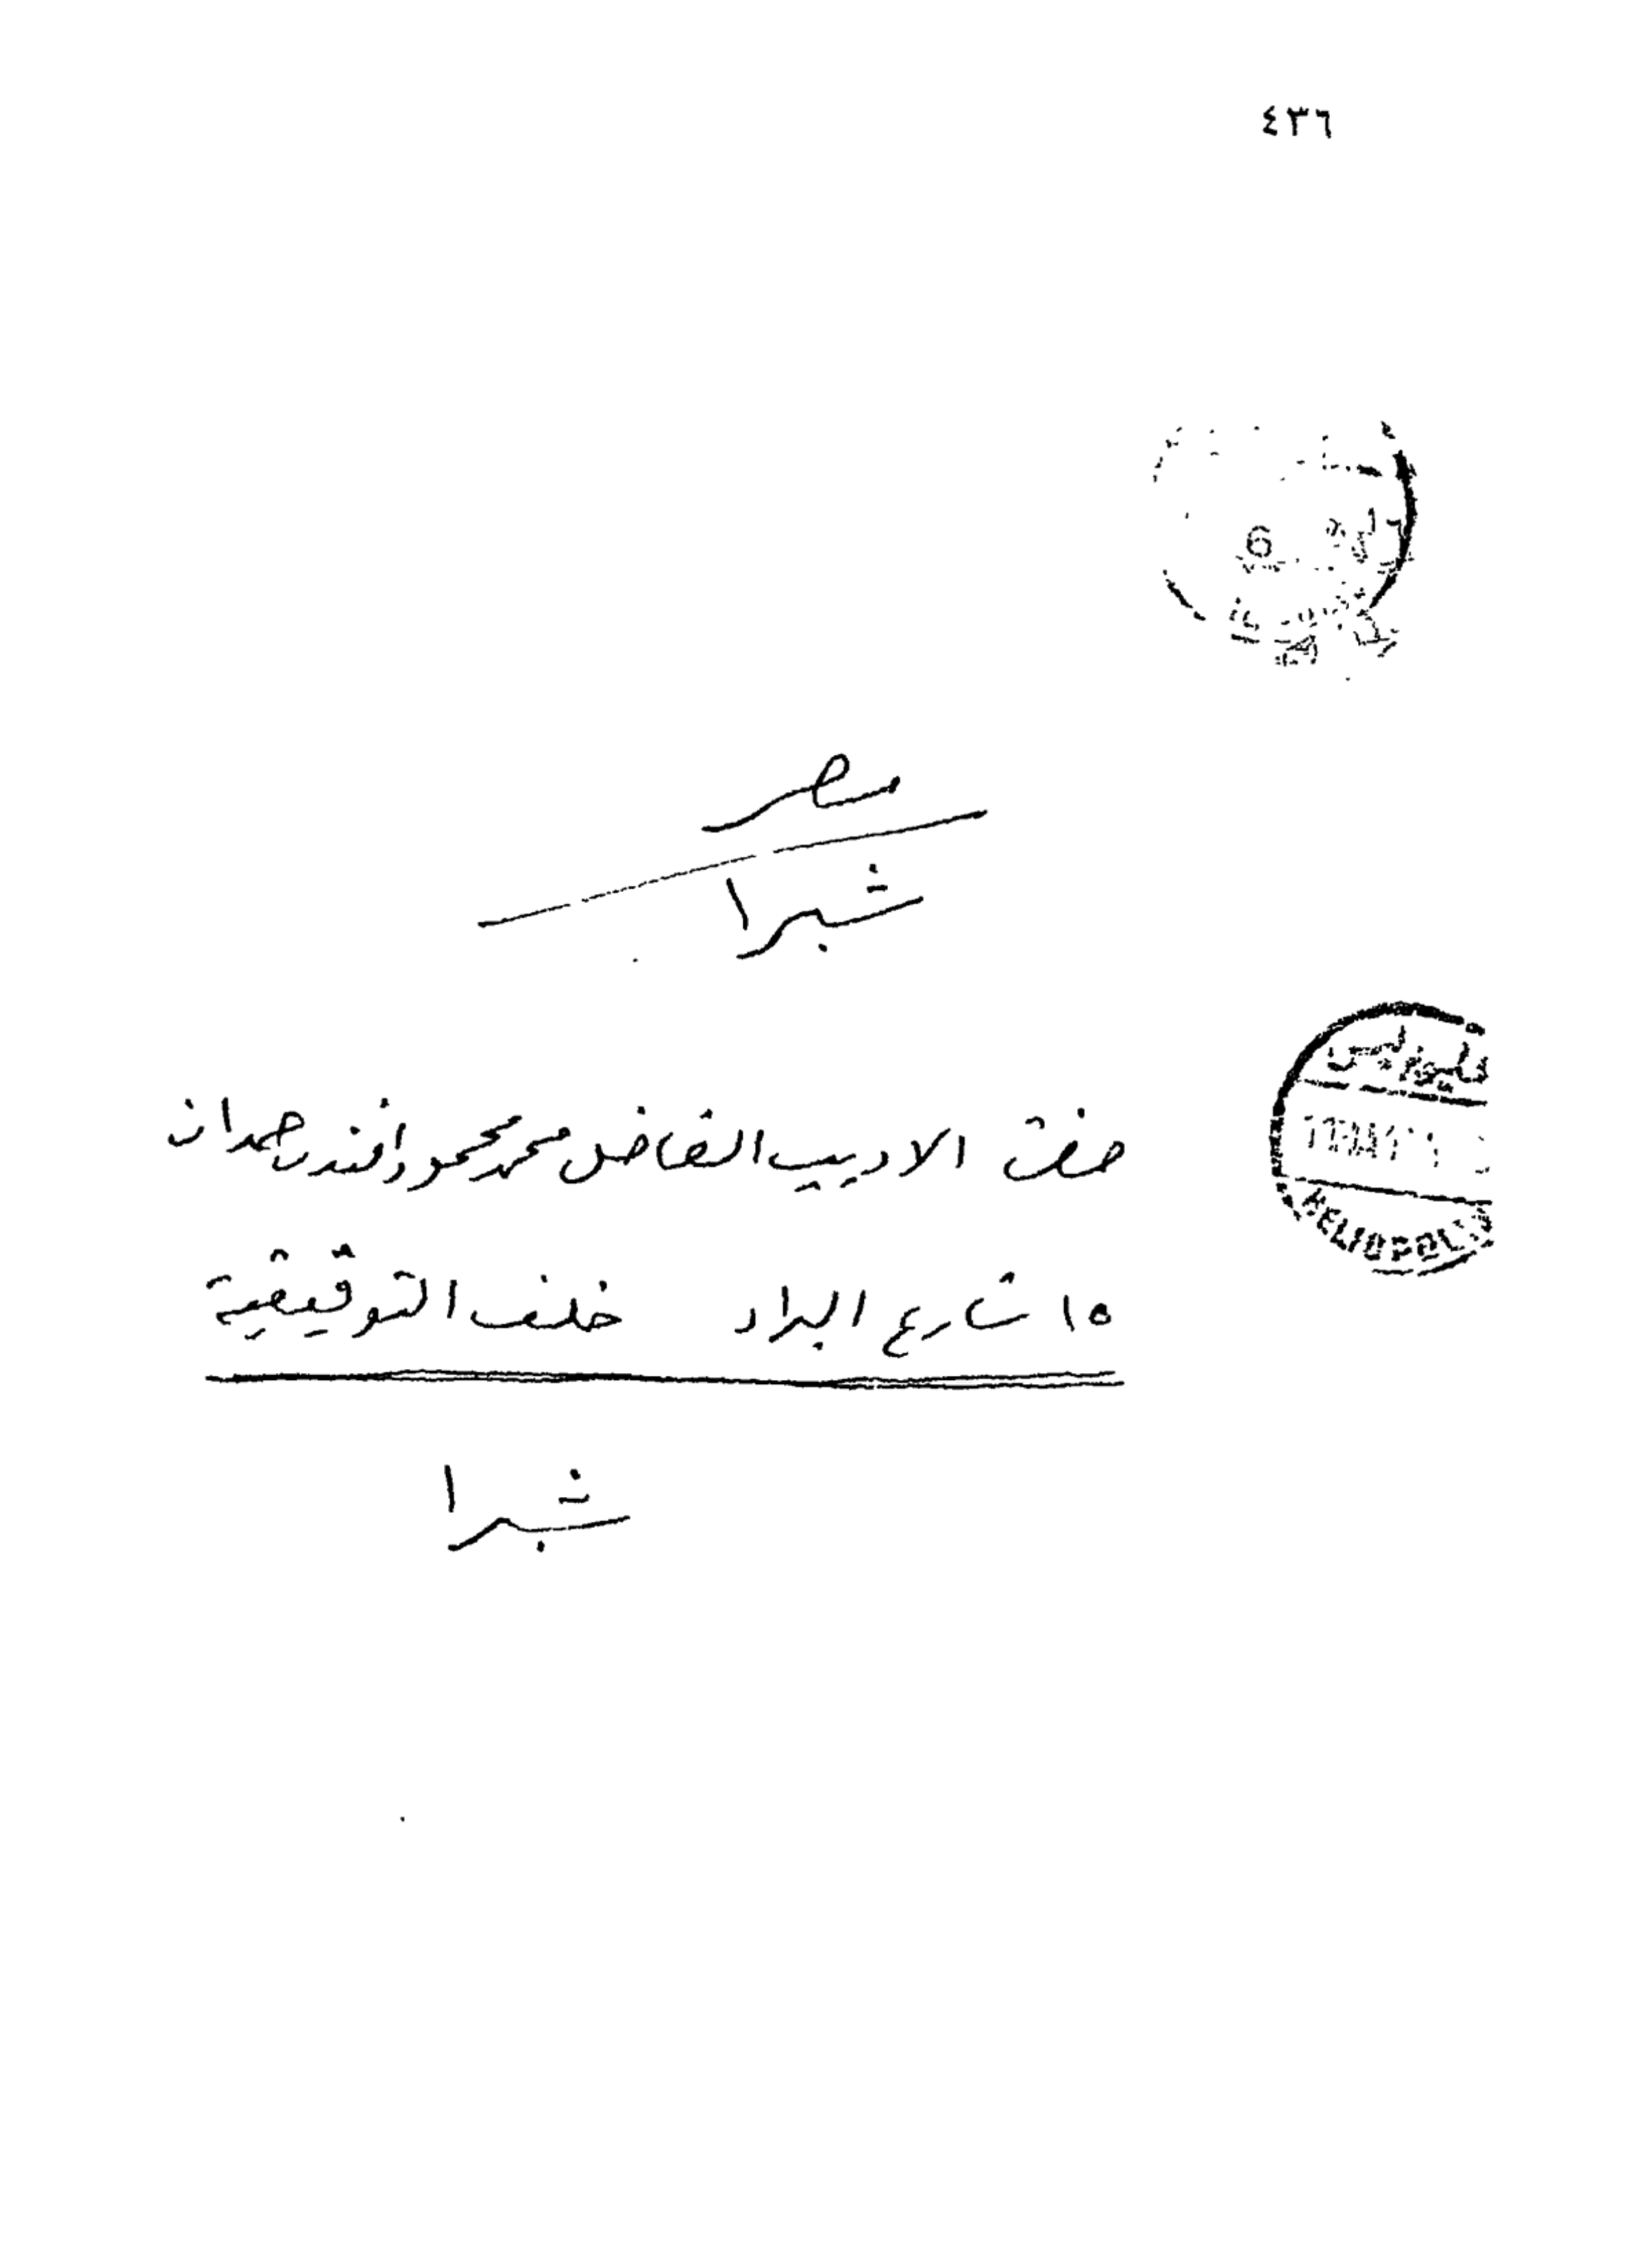 ٤٣٦
6
مصر
شبرا
هليوبوليس
HELIOPOLIS
حضرة الاديب الفاضل محمد محمود افندى حمدان
١٥ شارع البراد خلف التوفيقية
شبرا